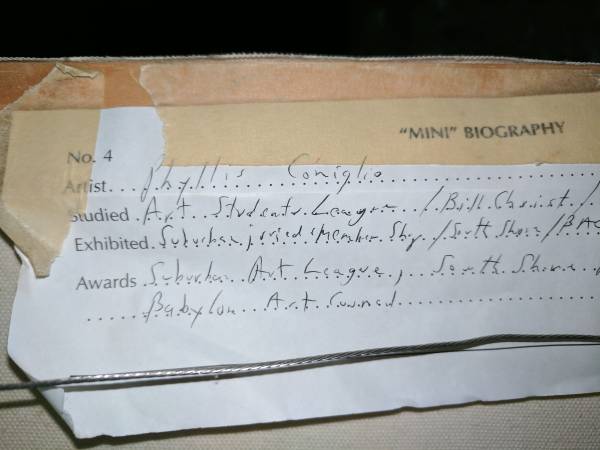 "MINI" BIOGRAPHY
No. 4
Artist... Phyllis Coniglio
Studied. Art Students League / Bill Christ /
Exhibited. Suburban juried & Member Shp. / South Shore / BAC
Awards Suburban Art League, South Shore
Babylon Art Council